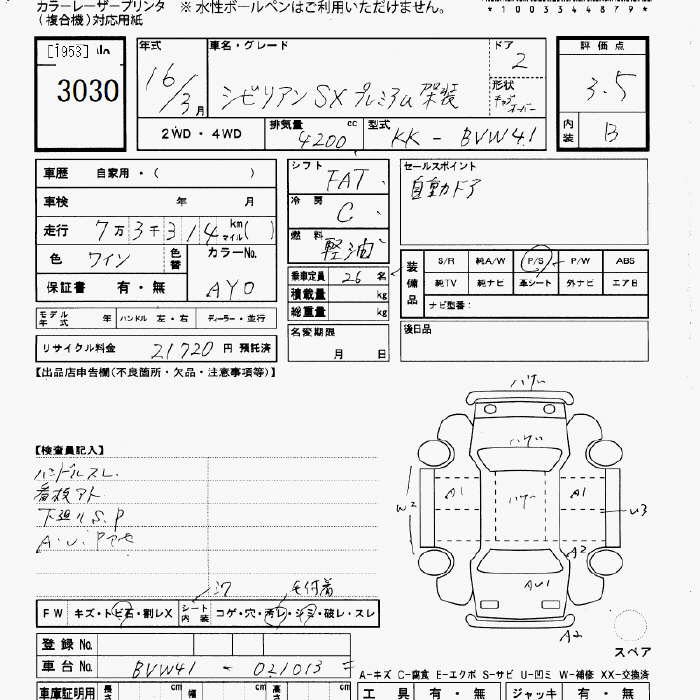 カラーレーザープリンタ ※ 水性ボールペンはご利用いただけません。
(複合機)対応用紙
*1003344879*
[1953]
3030
年式 16/3月
車名・グレード シビリアンSX プレミアム 架装
ドア 2
形状
評価点 3.5
内装 B
2WD・4WD
排気量 4200 cc
型式 KK-BVW41
車歴 自家用・( )
車検 年 月
走行 7万3千314 km マイル( )
色 ワイン 色替 カラーNo. AY0
保証書 有・無
シフト FAT
冷房 C
燃料 軽油
乗車定員 26名
積載量 kg
総重量 kg
セールスポイント
自動ドア
装備品
S/R 純A/W P/S P/W ABS
純TV 純ナビ 革シート 外ナビ エアB
ナビ型番:
モデル年式 年 ハンドル 左・右 ディーラー・並行
リサイクル料金 21720 円 預託済
名変期限
月 日
後日品
【出品店申告欄(不良箇所・欠品・注意事項等)】
【検査員記入】
ハンドルスレ
看板アト
下廻りS.P
A.U.P
A1
A1
W2
U3
A2
AU1
A2
スペア
FW キズ・トビ石・割レX
シート内装 コゲ・穴・汚レ・シミ・破レ・スレ
登録No.
車台No. BVW41-021013
A-キズ C-腐食 E-エクボ S-サビ U-凹ミ W-補修 XX-交換済
車庫証明用 長さ cm 幅 cm 高さ cm
工具 有・無 ジャッキ 有・無